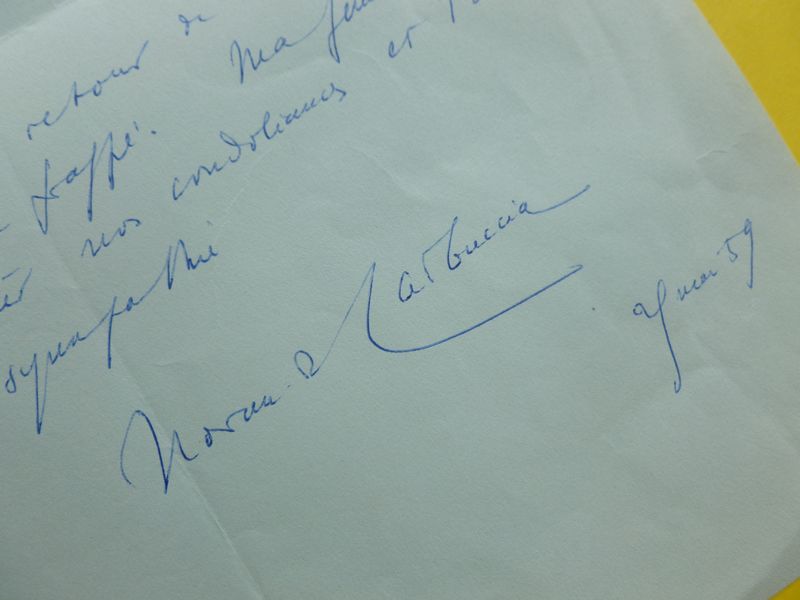 retour de
frappé. Ma femme
nos condoléances et
sympathie
Horace de Carbuccia
mai 59